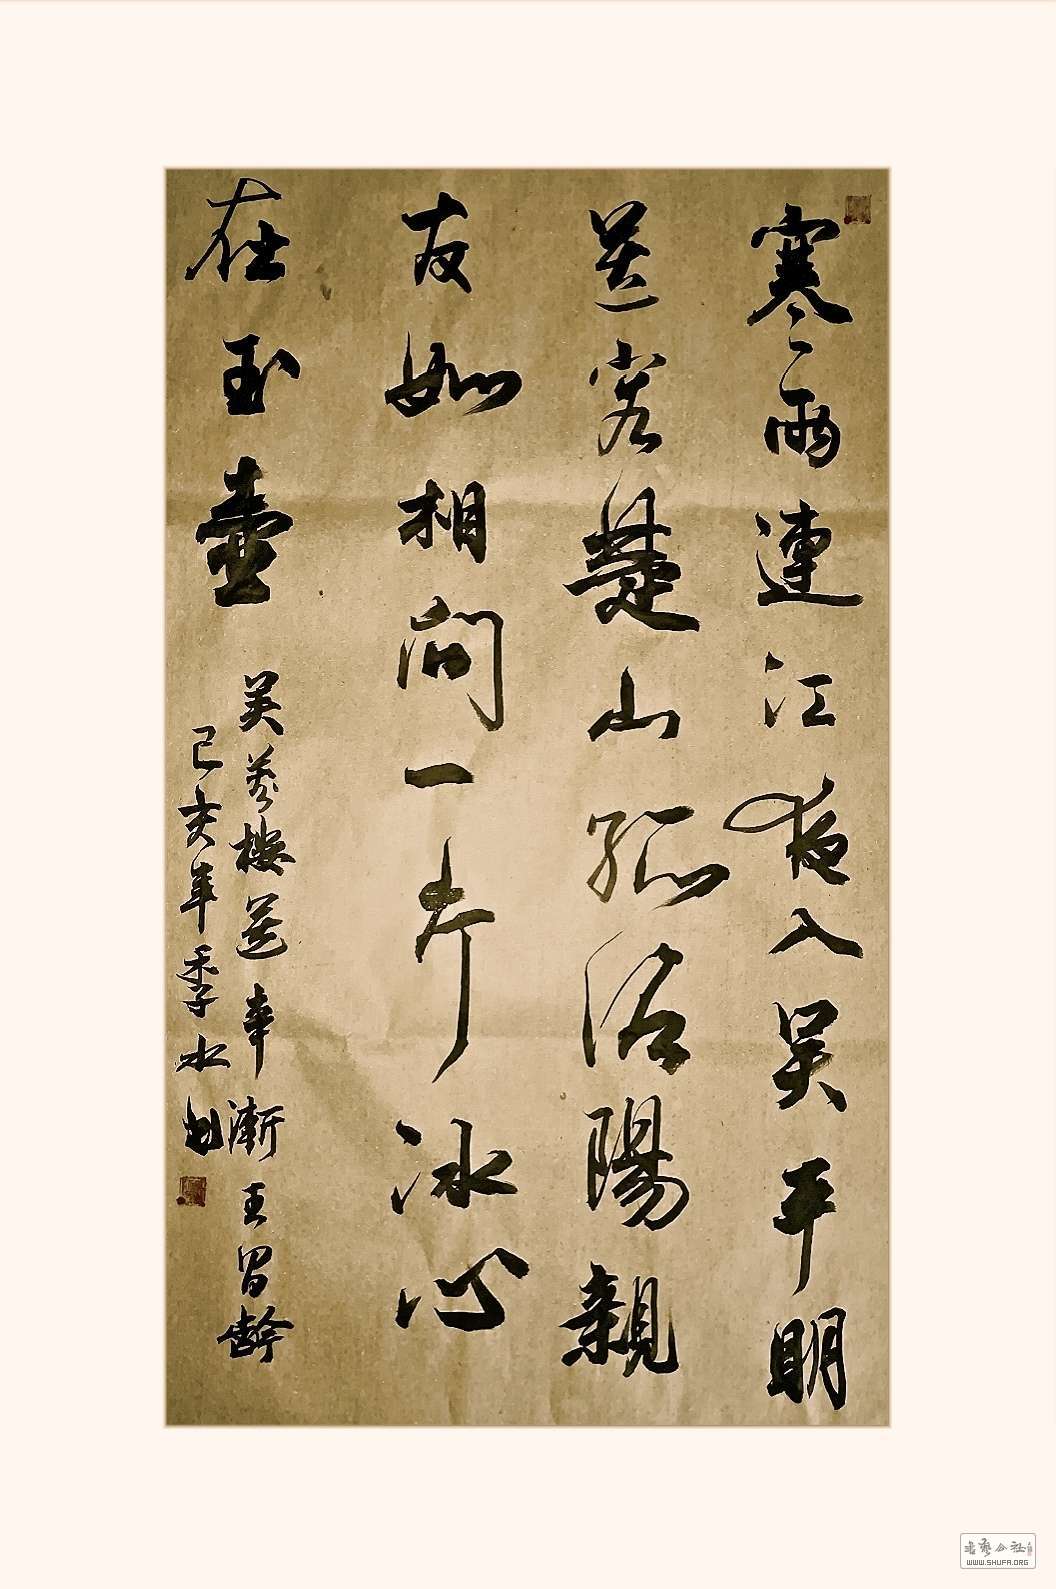 寒雨連江夜入吳平明
送客楚山孤洛陽親
友如相問一片冰心
在玉壺
芙蓉樓送辛漸王昌齡
己亥年季水
书艺公社
WWW.SHUFA.ORG